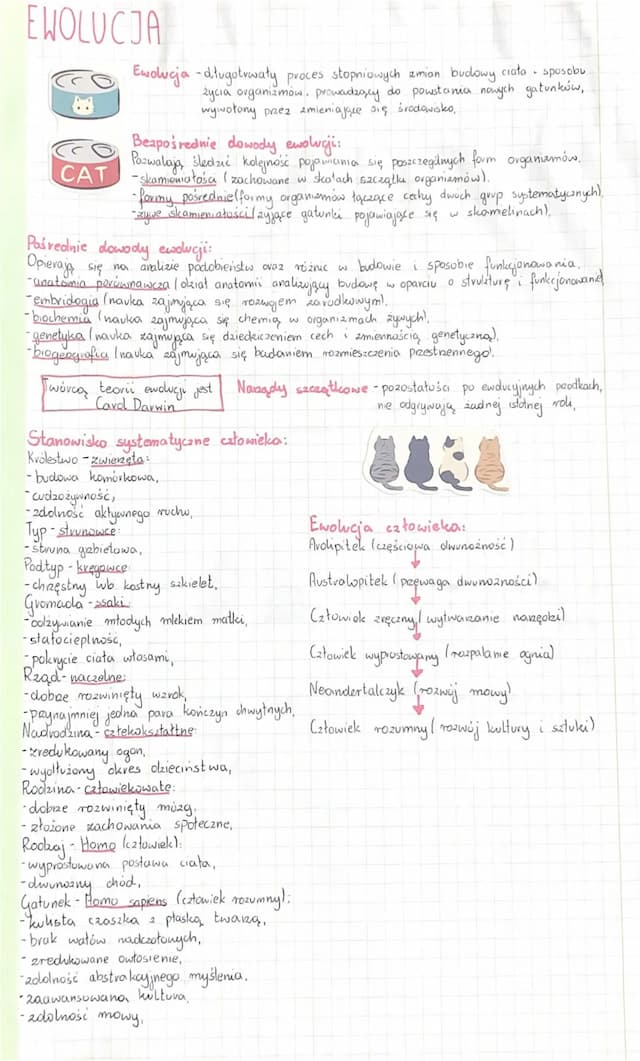 EWOLUCJA
Ewolucja - długotrwały proces stopniowych zmian budowy ciała i sposobu
życia organizmów, prowadzący do powstania nowych gatunków,
wywołony przez zmieniające się środowisko.
CAT
Bezpośrednie dowody ewolucji:
Pozwalają śledzić kolejność pojawiania się poszczególnych form organizmów.
- skamieniałości (zachowane w skałach szczątki organizmów),
- formy pośrednie (formy organizmów łączące cechy dwóch grup systematycznych),
- żywe skamieniałości (żyjące gatunki pojawiające się w skamielinach),
Pośrednie dowody ewolucji:
Opierają się na analizie podobieństw oraz różnic w budowie i sposobie funkcjonowania.
- anatomia porównawcza (dział anatomii analizujący budowę w oparciu o strukturę i funkcjonowanie)
- embriologia (nauka zajmująca się rozwojem zarodkowym),
- biochemia (nauka zajmująca się chemią w organizmach żywych),
- genetyka (nauka zajmująca się dziedziczeniem cech i zmiennością genetyczną),
- biogeografia (nauka zajmująca się badaniem rozmieszczenia przestrzennego).
Twórcą teorii ewolucji jest
Carol Darwin
Narządy szczątkowe - pozostałości po ewolucyjnych przodkach,
nie odgrywają żadnej istotnej roli,
Stanowisko systematyczne człowieka:
Królestwo - zwierzęta:
- budowa komórkowa,
- cudzożywność,
- zdolność aktywnego ruchu,
Typ - strunowce:
- struna grzbietowa,
Podtyp - kręgowce:
- chrzęstny lub kostny szkielet,
Gromada - ssaki:
- odżywianie młodych mlekiem matki,
- stałocieplność,
- pokrycie ciała włosami,
Rząd - naczelne:
- dobrze rozwinięty wzrok,
- przynajmniej jedna para kończyn chwytnych,
Nadrodzina - człekokształtne:
- zredukowany ogon,
- wydłużony okres dzieciństwa,
Rodzina - człowiekowate:
- dobrze rozwinięty mózg,
- złożone zachowania społeczne,
Rodzaj - Homo (człowiek):
- wyprostowana postawa ciała,
- dwunożny chód,
Gatunek - Homo sapiens (człowiek rozumny):
- kulista czaszka z płaską twarzą,
- brak wałów nadoczołowych,
- zredukowane owłosienie,
- zdolność abstrakcyjnego myślenia,
- zaawansowana kultura,
- zdolność mowy,
Ewolucja człowieka:
Ardipitek (częściowa dwunożność)
Australopitek (przewaga dwunożności)
Człowiek zręczny (wytwarzanie narzędzi)
Człowiek wyprostowany (rozpalanie ognia)
Neandertalczyk (rozwój mowy)
Człowiek rozumny (rozwój kultury i sztuki)